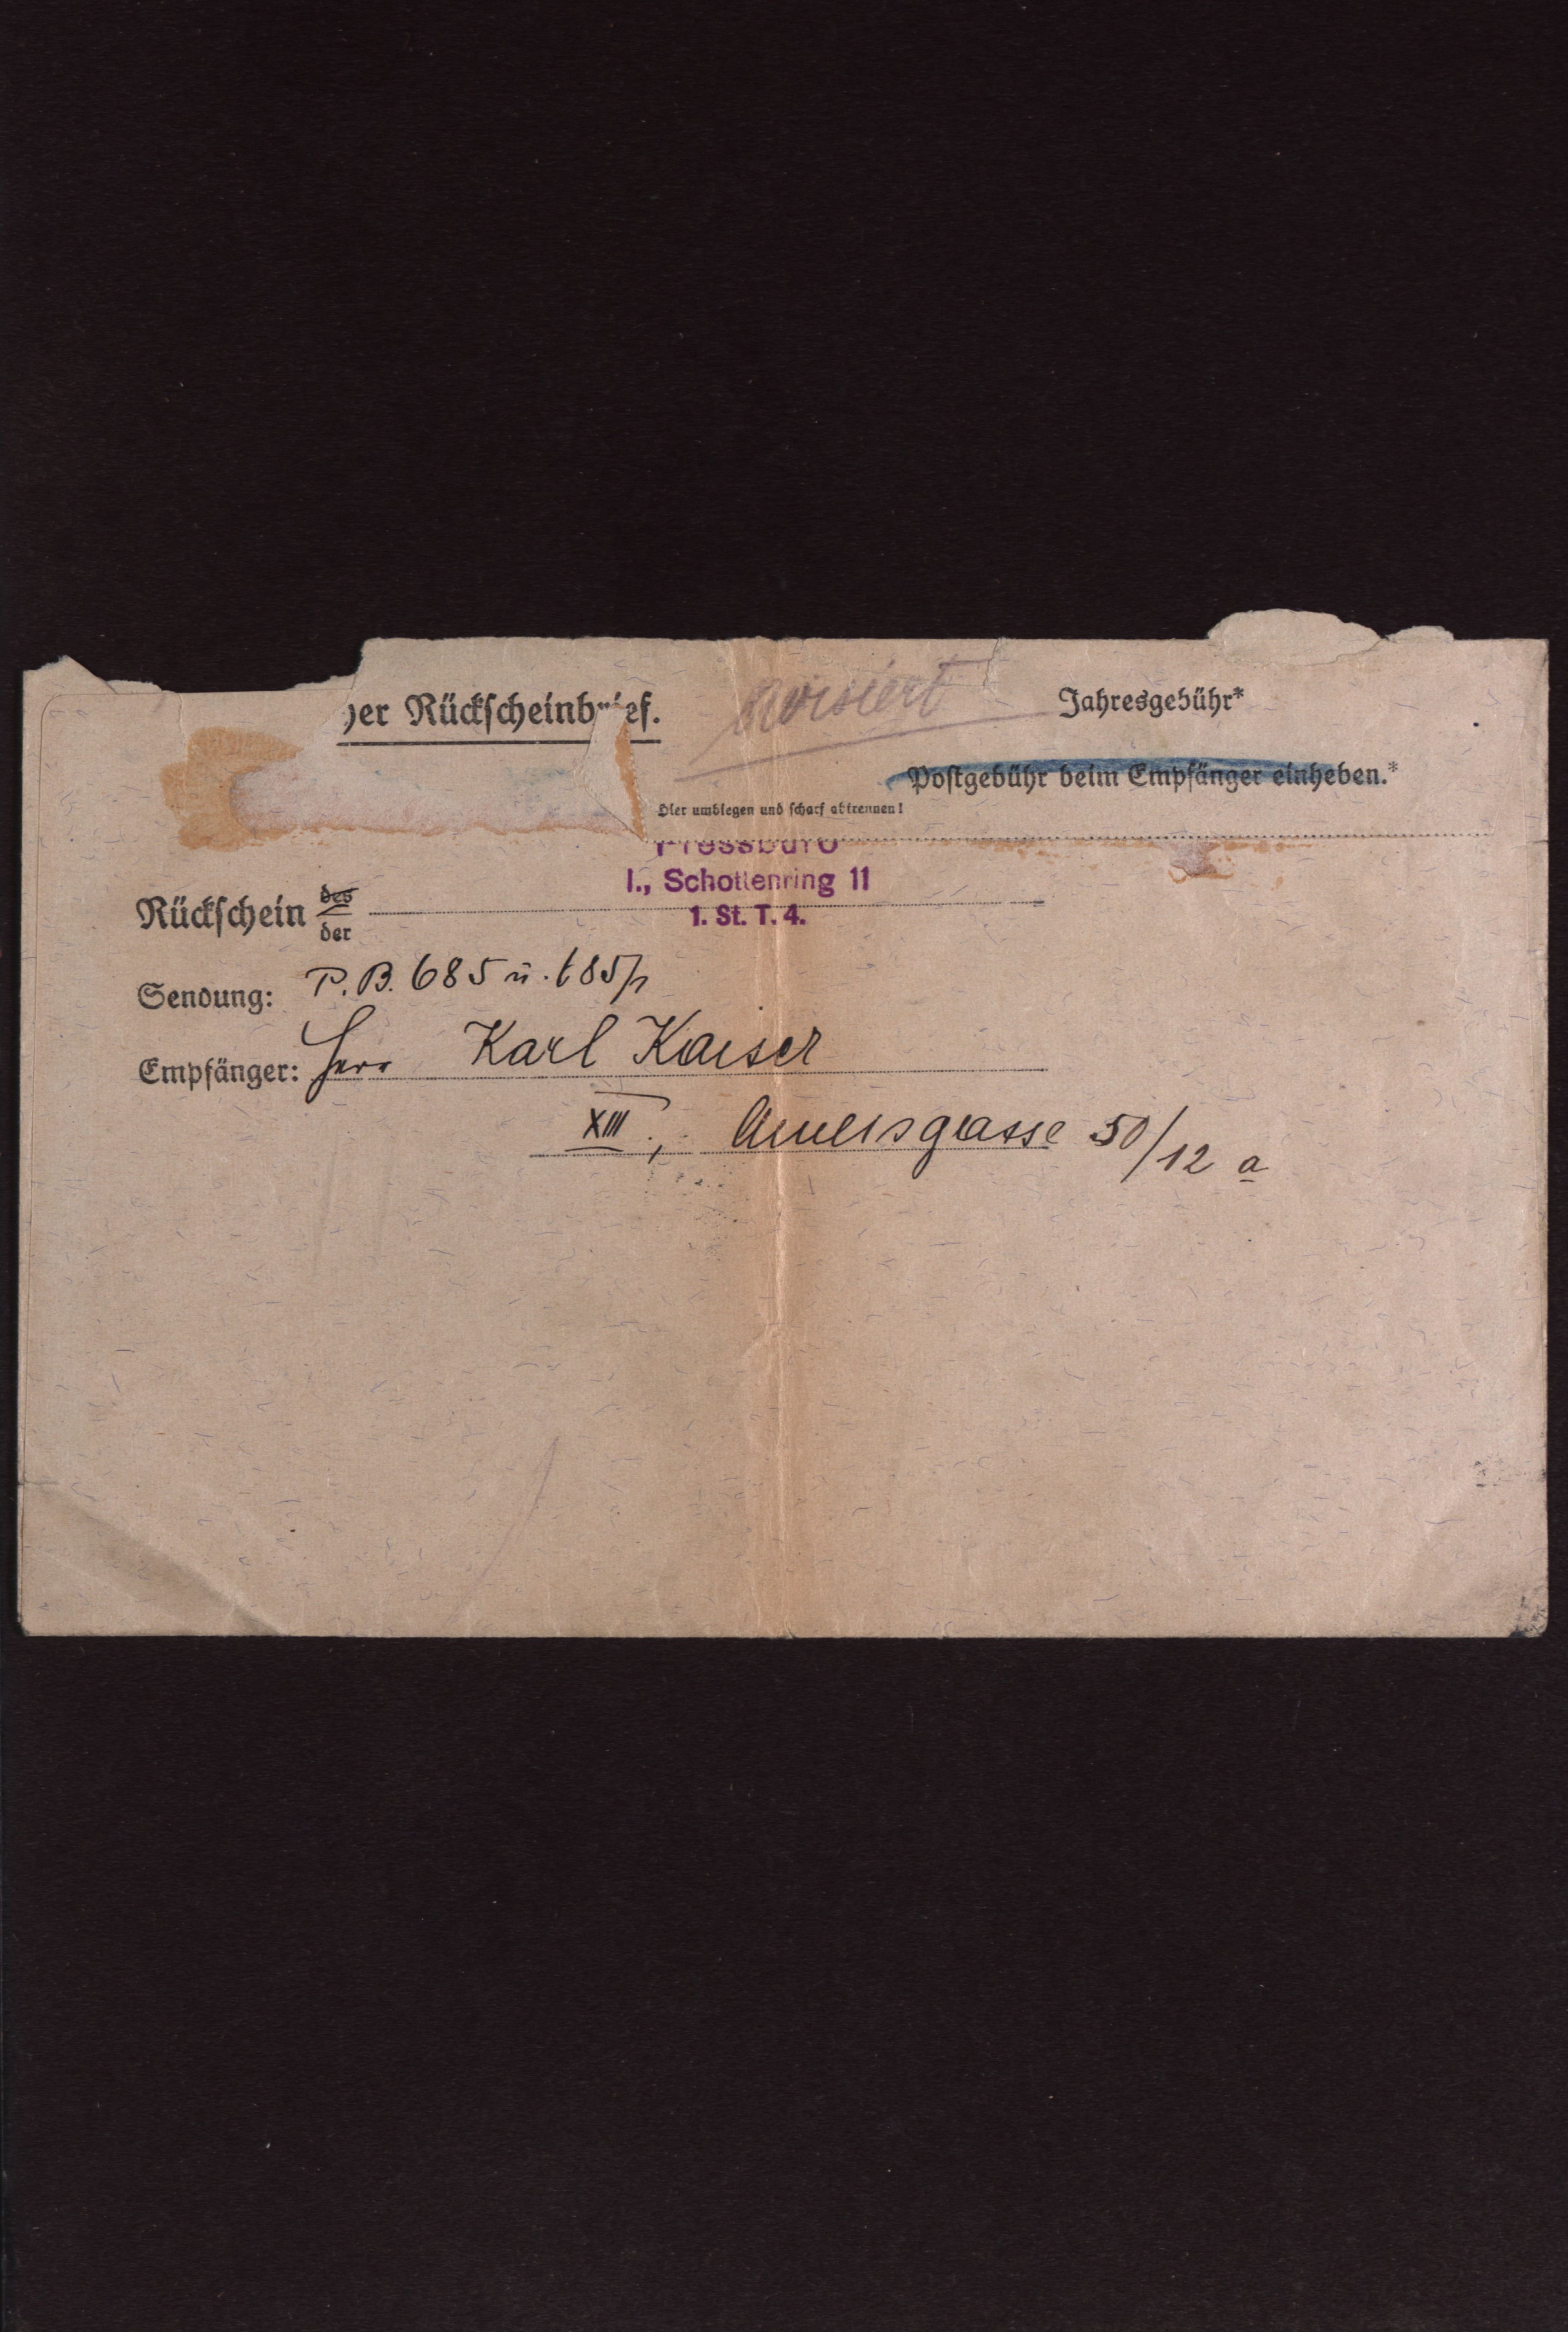 her Rückscheinbrief.
avisiert
Jahresgebühr*
Postgebühr beim Empfänger einheben.*
Hier umbiegen und scharf abtrennen!
Pressbüro
I., Schottenring 11
1. St. T. 4.
Rückschein des
der
Sendung: P. B. 685 u. 685/1
Empfänger: Herr Karl Kaiser
XIII., Ameisgasse 50/12 a